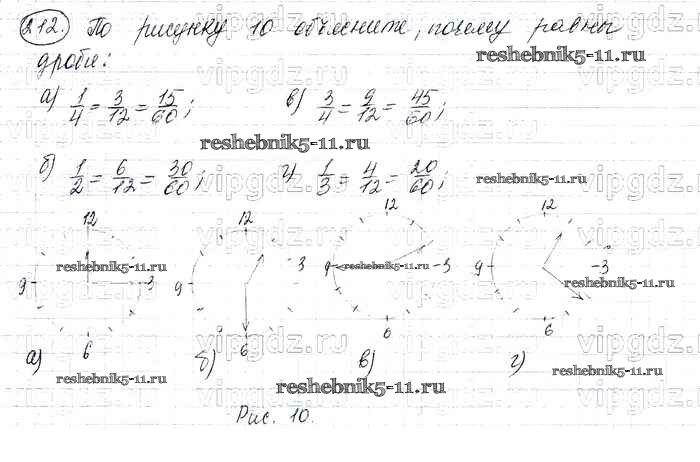 212. По рисунку 10 объясните, почему равны
reshebnik5-11.ru
дроби:
vipgdz.ru vipgdz.ru vipgdz.ru
а) 1/4 = 3/12 = 15/60; в) 3/4 = 9/12 = 45/60;
reshebnik5-11.ru
б) 1/2 = 6/12 = 30/60; г) 1/3 = 4/12 = 20/60;
reshebnik5-11.ru
vipgdz.ru vipgdz.ru vipgdz.ru
12 12 12 12
reshebnik5-11.ru reshebnik5-11.ru reshebnik5-11.ru
9 3 9 3 9 3 9 3
6 6 6 6
vipgdz.ru vipgdz.ru vipgdz.ru
а) б) в) г)
reshebnik5-11.ru reshebnik5-11.ru
reshebnik5-11.ru
Рис. 10.